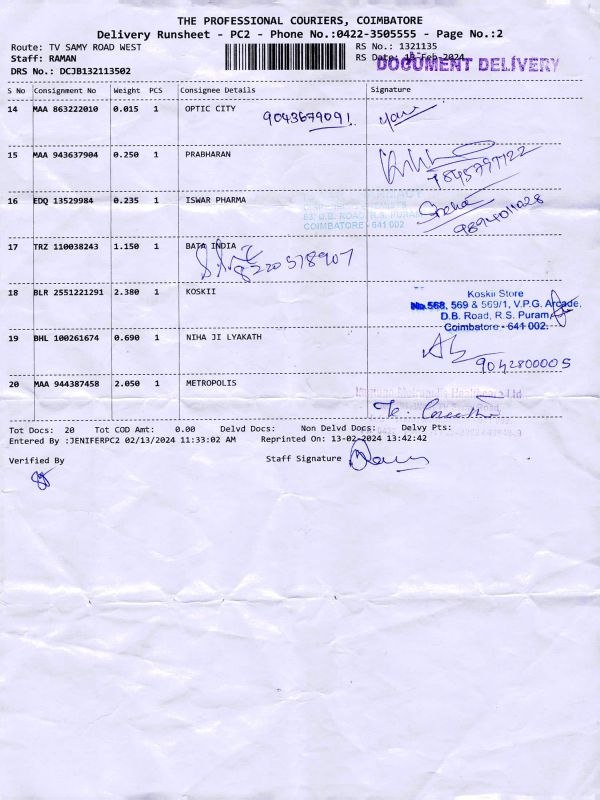 THE PROFESSIONAL COURIERS, COIMBATORE
Delivery Runsheet - PC2 - Phone No.:0422-3505555 - Page No.:2
Route: TV SAMY ROAD WEST
RS No.: 1321135
Staff: RAMAN
RS Date: 13-Feb-2024
DOCUMENT DELIVERY
DRS No.: DCJB132113502
S No Consignment No Weight PCS Consignee Details Signature
14 MAA 863222010 0.015 1 OPTIC CITY
9043679091
15 MAA 943637904 0.250 1 PRABHARAN
9845797122
16 EDQ 13529984 0.235 1 ISWAR PHARMA
63, D.B. ROAD, R.S. PURAM
COIMBATORE - 641 002
9894011028
17 TRZ 110038243 1.150 1 BATA INDIA
8220578907
18 BLR 2551221291 2.380 1 KOSKII
Koskii Store
No.568, 569 & 569/1, V.P.G. Arcade,
D.B. Road, R.S. Puram,
Coimbatore - 641 002.
19 BHL 100261674 0.690 1 NIHA JI LYAKATH
9042800005
20 MAA 944387458 2.050 1 METROPOLIS
Tot Docs: 20 Tot COD Amt: 0.00 Delvd Docs: Non Delvd Docs: Delvy Pts:
Entered By :JENIFERPC2 02/13/2024 11:33:02 AM Reprinted On: 13-02-2024 13:42:42
Verified By
Staff Signature